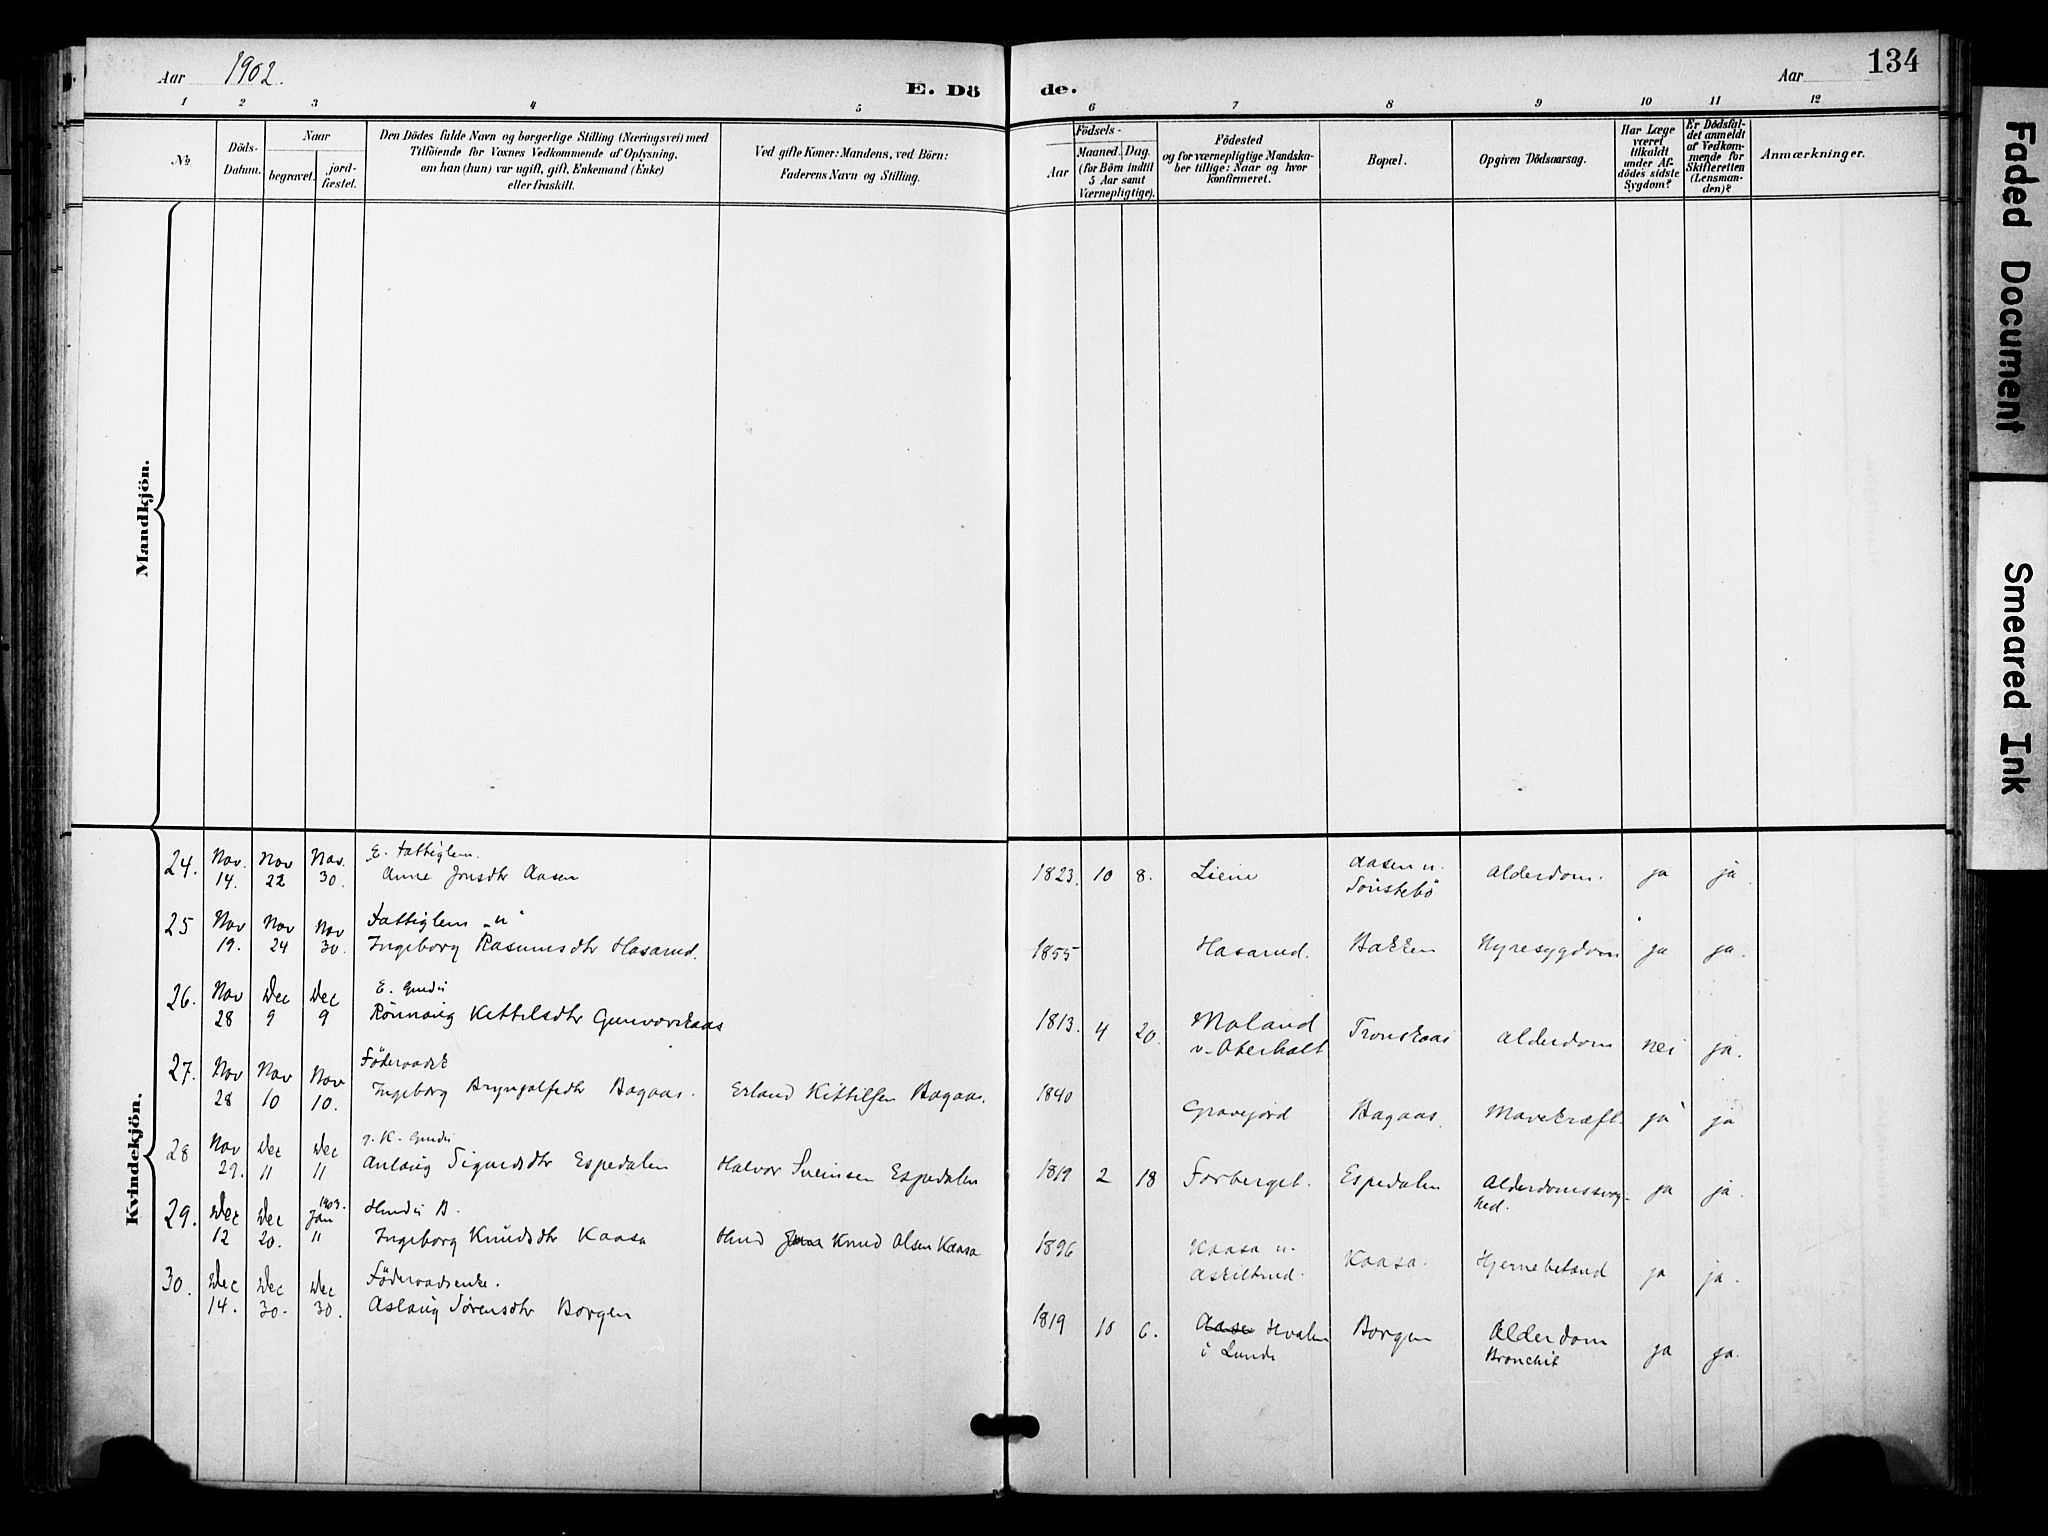 Aar 1902.
E. Dö
de.
Aar
134
1 2 3 4 5 6 7 8 9 10 11 12
№
Döds-
Datum.
Naar
begravet.
jord-
fæstet.
Den Dödes fulde Navn og borgerlige Stilling (Næringsvei) med
Tilföiende for Voxnes Vedkommende af Oplysning,
om han (hun) var ugift, gift, Enkemand (Enke)
eller fraskilt.
Ved gifte Koner: Mandens, ved Börn:
Faderens Navn og Stilling.
Födsels-
Aar
Maaned. Dag.
(for Börn indtil
5 Aar samt
Værnepligtige).
Födested
og for værnepligtige Mandska-
ber tillige: Naar og hvor
konfirmeret.
Bopæl.
Opgiven Dödsaarsag.
Har Læge
været
tilkaldt
under Af-
dödes sidste
Sygdom?
Er Dödsfal-
det anmeldt
af Vedkom-
mende for
Skifteretten
(Lensman-
den)?
Anmærkninger.
Mandkjön.
Kvindekjön.
24. Nov. 14. Nov 22 Nov. 30.
E. Fattiglem.
Anne Jonsdtr Aasen
1823. 10 8. Liene
Aasen u.
Sønstebø
Alderdom. ja ja.
25 Nov 19. Nov 24 Nov 30.
Fattiglem "u"
Ingeborg Rasmusdtr Hasarud.
1855 Hasarud. Bakken Nyresygdom ja ja.
26. Nov 28 Dec 9 Dec 9
E. Gmdn
Rönnaug Kettilsdtr Gunvorskaas
1813. 4 20.
Moland
v. Aterholt
Tronskaas Alderdom nei ja.
27. Nov 28 Nov 10 Nov 10.
Føderaadsk
Ingeborg Bryngolfsdtr Bagaas. Erland Kittilsen Bagaas.
1840 Gravejord Bagaas. Mavekræft. ja ja
28 Nov 29. Dec 11 Dec 11
g. K. Gmdn
Anlaug Sigurdsdtr Espedalen Halvor Sveinsen Espedalen
1819 2 18 Forberget. Espedalen
Alderdomssvag-
hed.
ja ja.
29. Dec 12 Dec 20. 1903. Jan 11
Husm B.
Ingeborg Knudsdtr Kaasa Husm Knud Olsen Kaasa
1896
Kaasa u.
Askiltrud.
Kaasa. Hjernebetænd ja ja.
30. Dec 14. Dec 30. Dec 30.
Føderaadsenke.
Aslaug Sørensdtr Borgen
1819 10 6.
Hvalen
i Lunde
Borgen
Alderdom
Bronchit
ja ja.
Faded Document
Smeared Ink